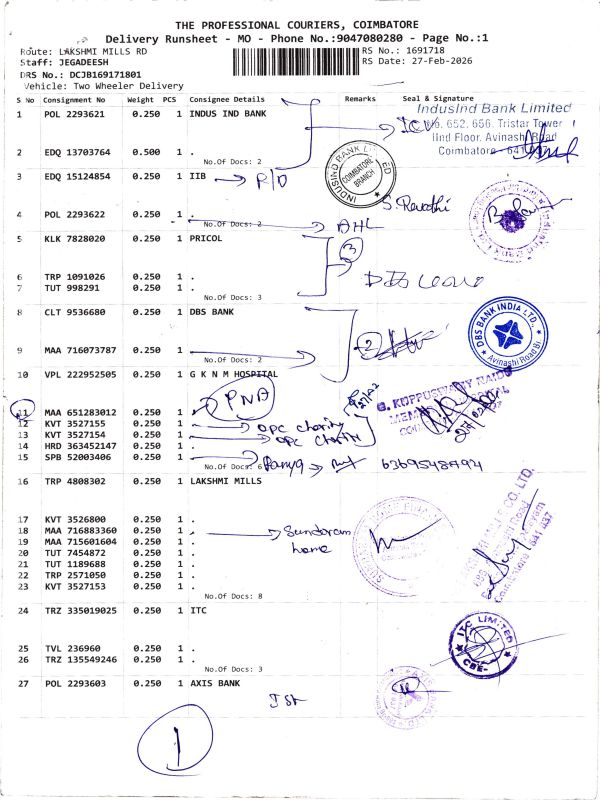 THE PROFESSIONAL COURIERS, COIMBATORE
Delivery Runsheet - MO - Phone No.:9047080280 - Page No.:1
Route: LAKSHMI MILLS RD
RS No.: 1691718
Staff: JEGADEESH
RS Date: 27-Feb-2026
DRS No.: DCJB169171801
Vehicle: Two Wheeler Delivery
S No Consignment No Weight PCS Consignee Details Remarks Seal & Signature
1 POL 2293621 0.250 1 INDUS IND BANK
IndusInd Bank Limited
No. 652, 656, Tristar Tower
IInd Floor, Avinashi Road
Coimbatore - 641
2 EDQ 13703764 0.500 1 .
No.Of Docs: 2
INDUSIND BANK LIMITED
COIMBATORE BRANCH
3 EDQ 15124854 0.250 1 IIB
P/D
S. Revathi
4 POL 2293622 0.250 1 .
No.Of Docs: 2
AHL
5 KLK 7828020 0.250 1 PRICOL
3
6 TRP 1091026 0.250 1 .
7 TUT 998291 0.250 1 .
No.Of Docs: 3
8 CLT 9536680 0.250 1 DBS BANK
2
DBS BANK INDIA LTD.,
Avinashi Road Br.
9 MAA 716073787 0.250 1 .
No.Of Docs: 2
10 VPL 222952505 0.250 1 G K N M HOSPITAL
PNB
G. KUPPUSWAMY NAIDU
11 MAA 651283012 0.250 1 .
12 KVT 3527155 0.250 1 .
opc charity
13 KVT 3527154 0.250 1 .
opc charity
14 HRD 363452147 0.250 1 .
15 SPB 52003406 0.250 1 .
No.Of Docs: 6
16 TRP 4808302 0.250 1 LAKSHMI MILLS
17 KVT 3526800 0.250 1 .
18 MAA 716883360 0.250 1 .
Sundaram
home
19 MAA 715601604 0.250 1 .
20 TUT 7454872 0.250 1 .
21 TUT 1189688 0.250 1 .
22 TRP 2571050 0.250 1 .
23 KVT 3527153 0.250 1 .
No.Of Docs: 8
24 TRZ 335019025 0.250 1 ITC
ITC LIMITED
CBE-
25 TVL 236960 0.250 1 .
26 TRZ 135549246 0.250 1 .
No.Of Docs: 3
27 POL 2293603 0.250 1 AXIS BANK
1